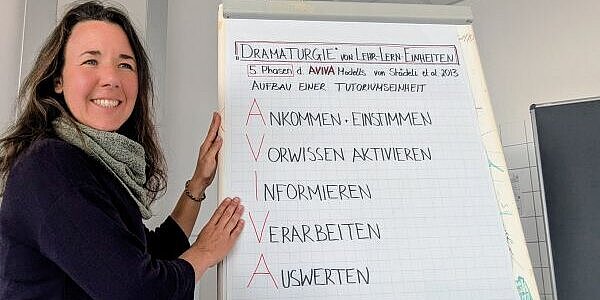 „DRAMATURGIE“ VON LEHR-LERN-EINHEITEN
5 Phasen d. AVIVA Modells von Städeli et al. 2013
AUFBAU EINER TUTORIUMSEINHEIT
ANKOMMEN · EINSTIMMEN
VORWISSEN AKTIVIEREN
INFORMIEREN
VERARBEITEN
AUSWERTEN